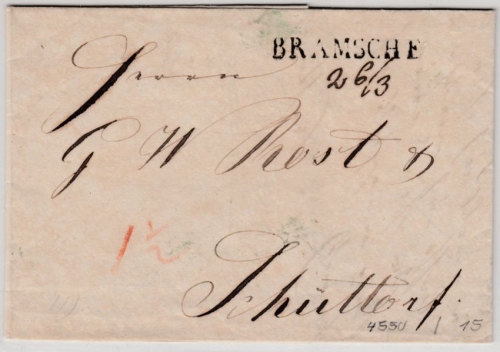 BRAMSCHE
26/3
Herrn
G W Rost &
1½
Schüttorf.
4550 | 15